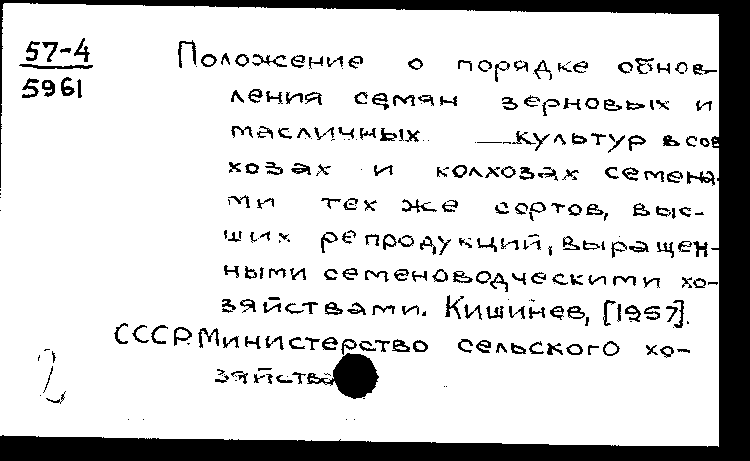 57-4
5961
Положение о порядке обнов-
ления семян зерновых и
масличных культур в сов
хозах и колхозах семена-
ми тех же сортов, выс-
ших репродукций, выращен-
ными семеноводческими хо-
зяйствами. Кишинев, [1957].
СССР. Министерство сельского хо-
зяйства
2